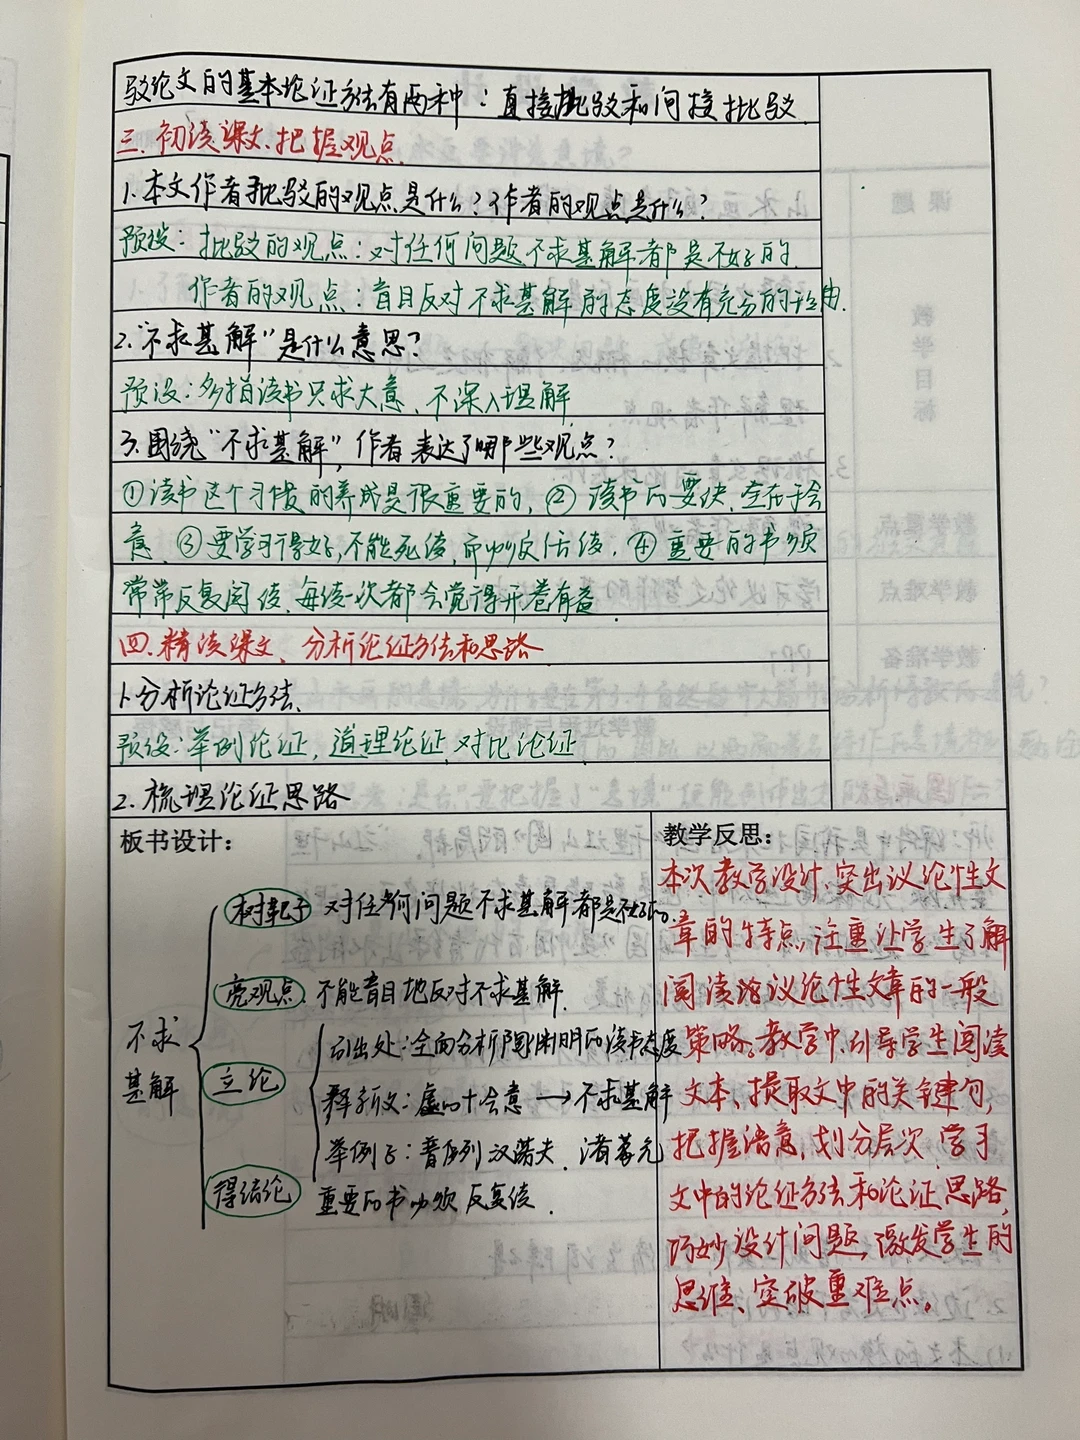 驳论文的基本论证方法有两种：直接批驳和间接批驳
三.初读课文、把握观点.
1.本文作者批驳的观点是什么？作者的观点是什么？
预设：批驳的观点：对任何问题不求甚解都是不好的.
作者的观点：盲目反对不求甚解的态度没有充分的理由.
2."不求甚解"是什么意思？
预设：多指读书只求大意、不深入理解
3.围绕"不求甚解"，作者表达了哪些观点？
①读书这个习惯的养成是很重要的，②读书的要诀，全在于会
意、③要学习得好，不能死读，而必须活读.④重要的书须
常常反复阅读、每读一次都会觉得开卷有益
四.精读课文、分析论证方法和思路
1.分析论证方法、
预设：举例论证，道理论证、对比论证
2.梳理论证思路
板书设计：
不求
甚解
树靶子 对任何问题不求甚解都是不好的.
亮观点、不能盲目地反对不求甚解.
立论
引出处：全面分析陶渊明的读书态度
释新义：虚心+会意→不求甚解
举例子：普列汉诺夫、诸葛亮
得结论 重要的书必须反复读.
教学反思：
本次教学设计，突出议论性文
章的特点，注重让学生了解
阅读议论性文章的一般
策略。教学中，引导学生阅读
文本、提取文中的关键句，
把握语意，划分层次，学习
文中的论证方法和论证思路，
巧妙设计问题，激发学生的
思维、突破重难点。